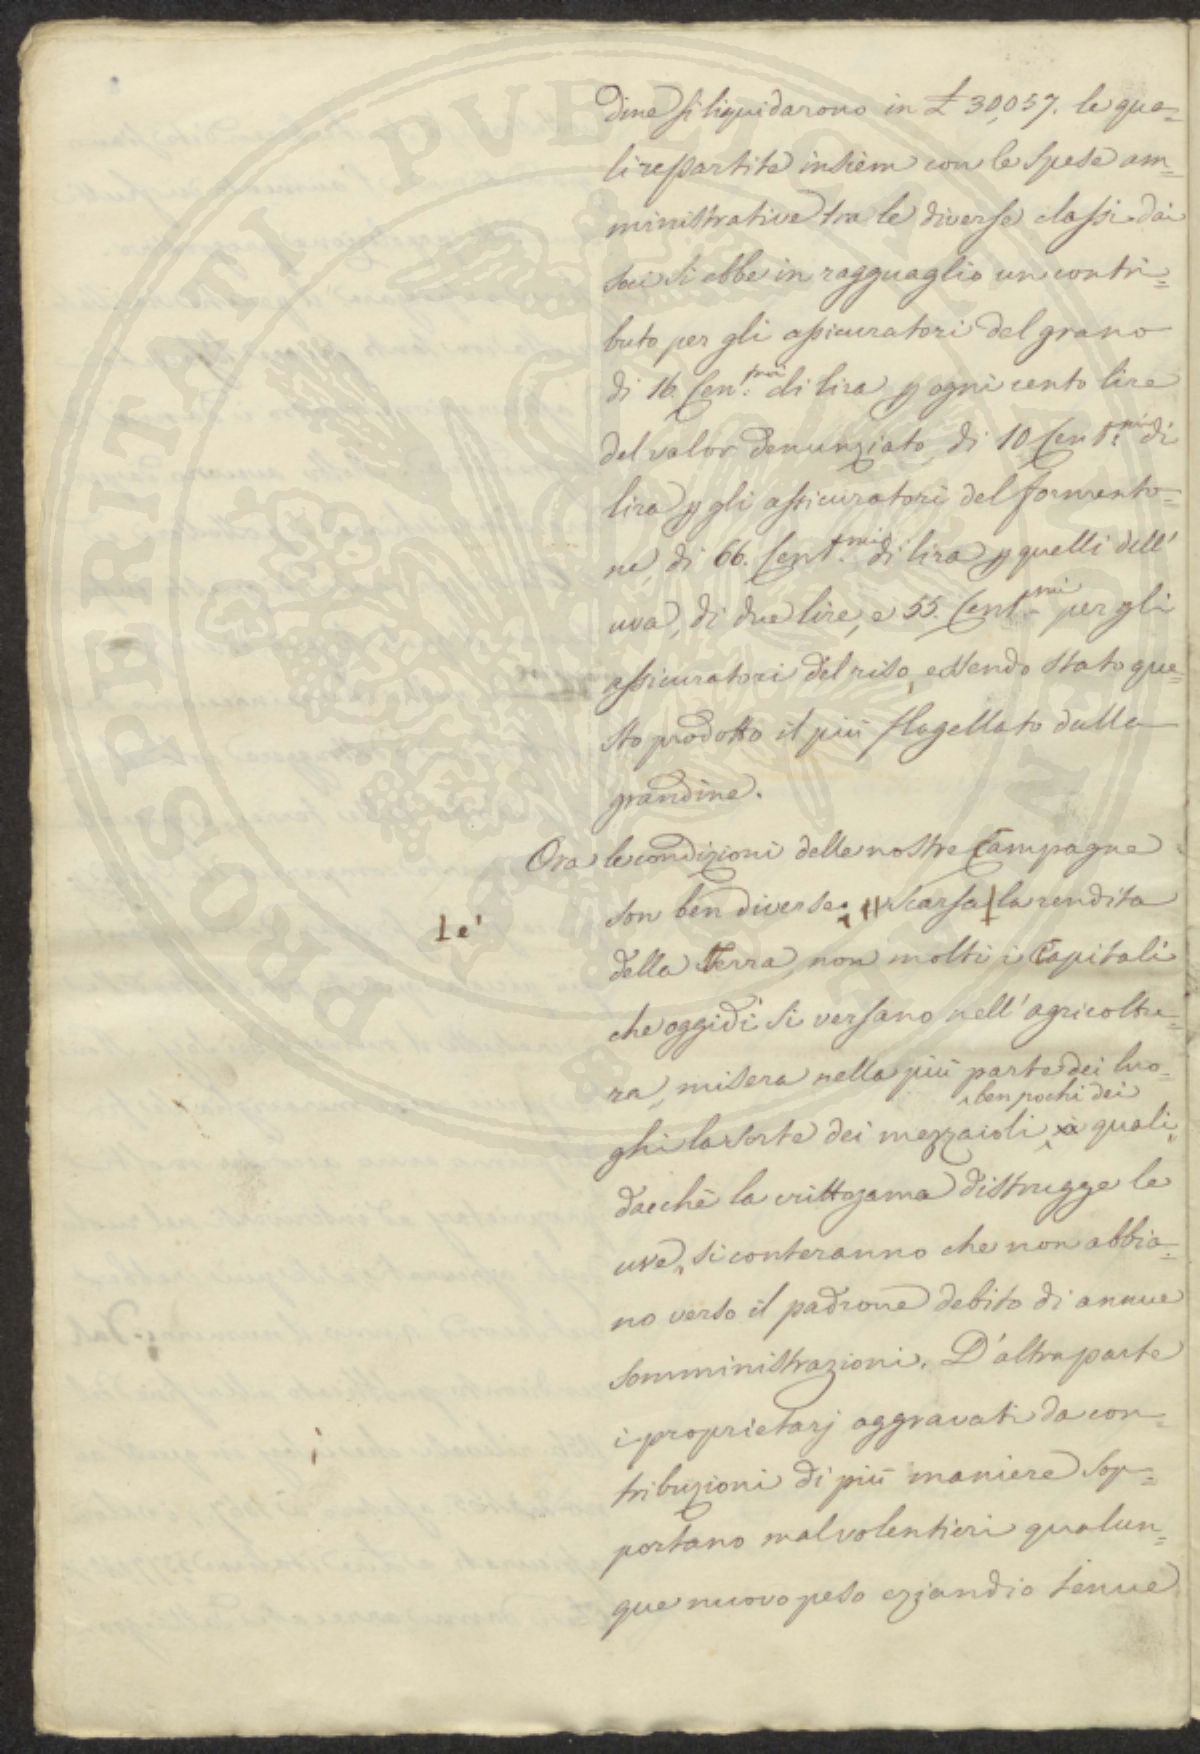 dine si liquidarono in £ 30,057. le qua=
li repartite insiem con le spese am=
ministrative tra le diverse classi dei
soci si ebbe in ragguaglio un contri=
buto per gli assicuratori del grano
di 16. Cen.mi di lira p ogni cento lire
del valor denunziato, di 10 Cent.mi di
lira p gli assicuratori del formento=
ne, di 66. Cent.mi di lira p quelli dell'
uva, di due lire, e 55. Cent.mi per gli
assicuratori del riso, essendo stato que=
sto prodotto il più flagellato dalla
grandine.
Ora le condizioni delle nostre Campagne
son ben diverse: scarsa la rendita
è
della Terra, non molti i Capitali
che oggidì si versano nell'agricoltu=
ra, misera nella più parte dei luo=
ben pochi dei
ghi la sorte dei mezzaioli, i quali,
dacchè la crittogama distrugge le
uve, si conteranno che non abbia=
no verso il padrone debito di annue
somministrazioni. D'altra parte
i proprietarj aggravati da con=
tribuzioni di più maniere sop=
portano malvolentieri qualun=
que nuovo peso eziandio tenue
PROSPERITATI PVBLICAE